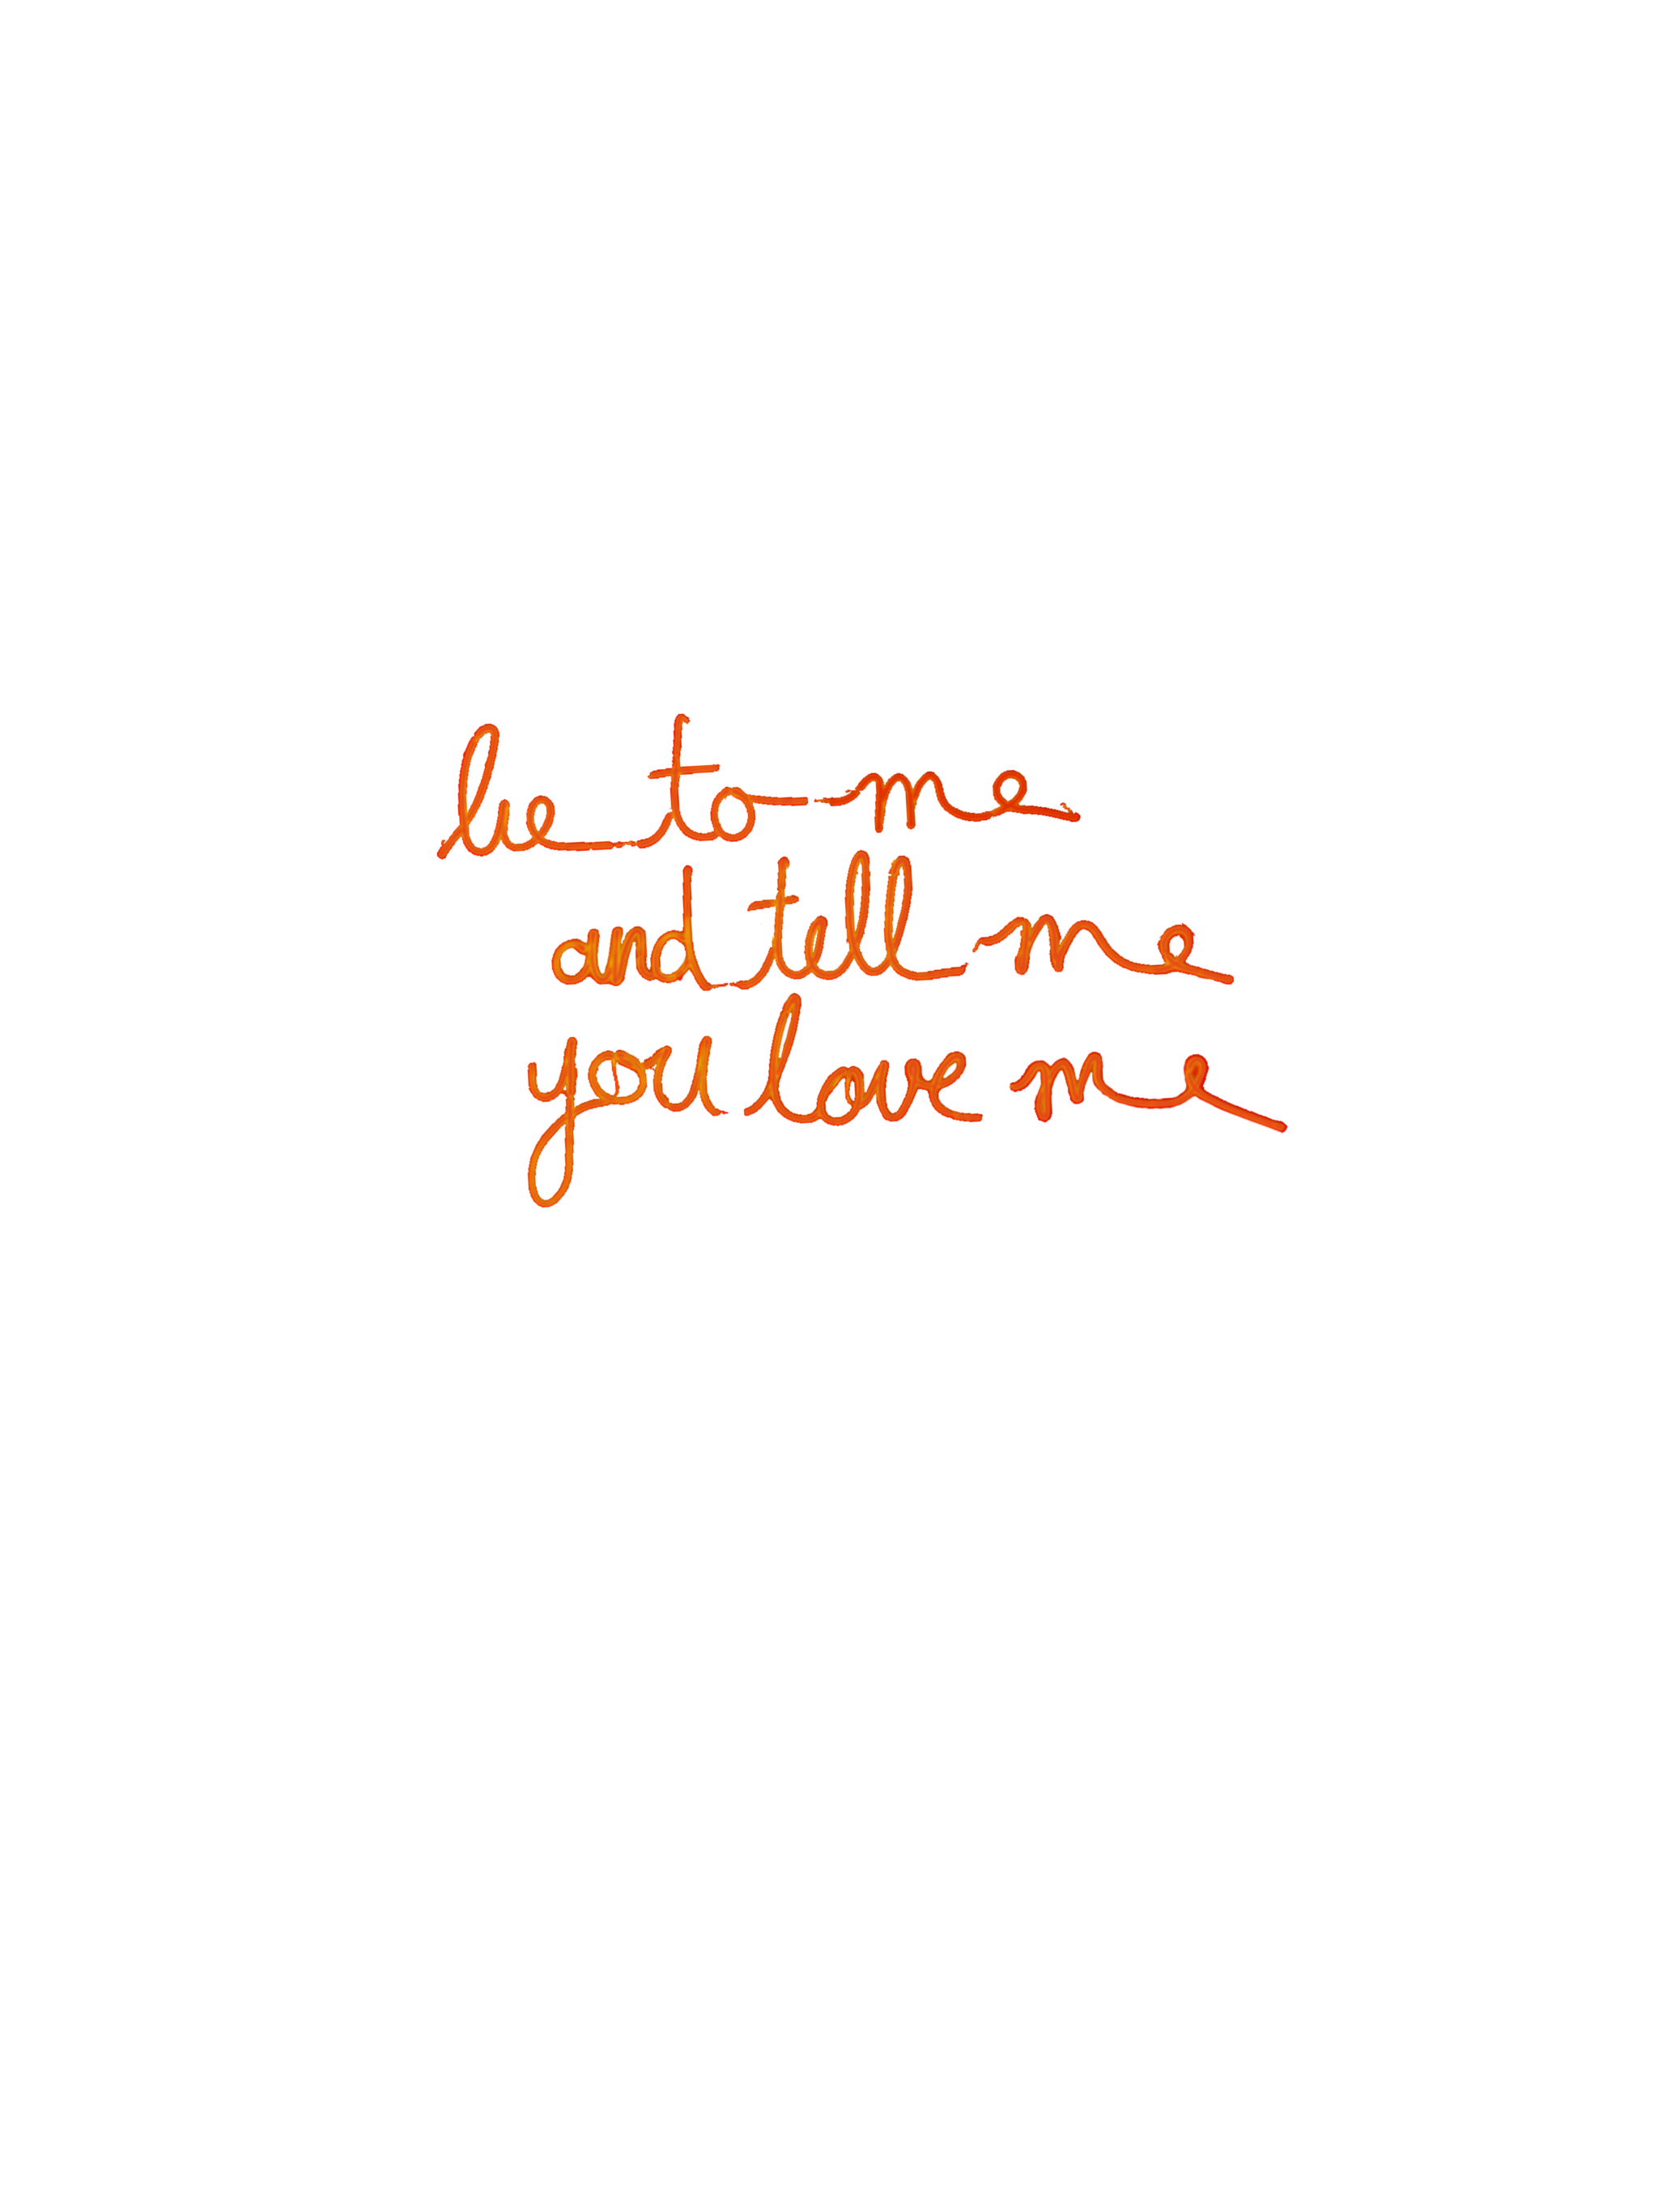 be to me
and tell me
you love me